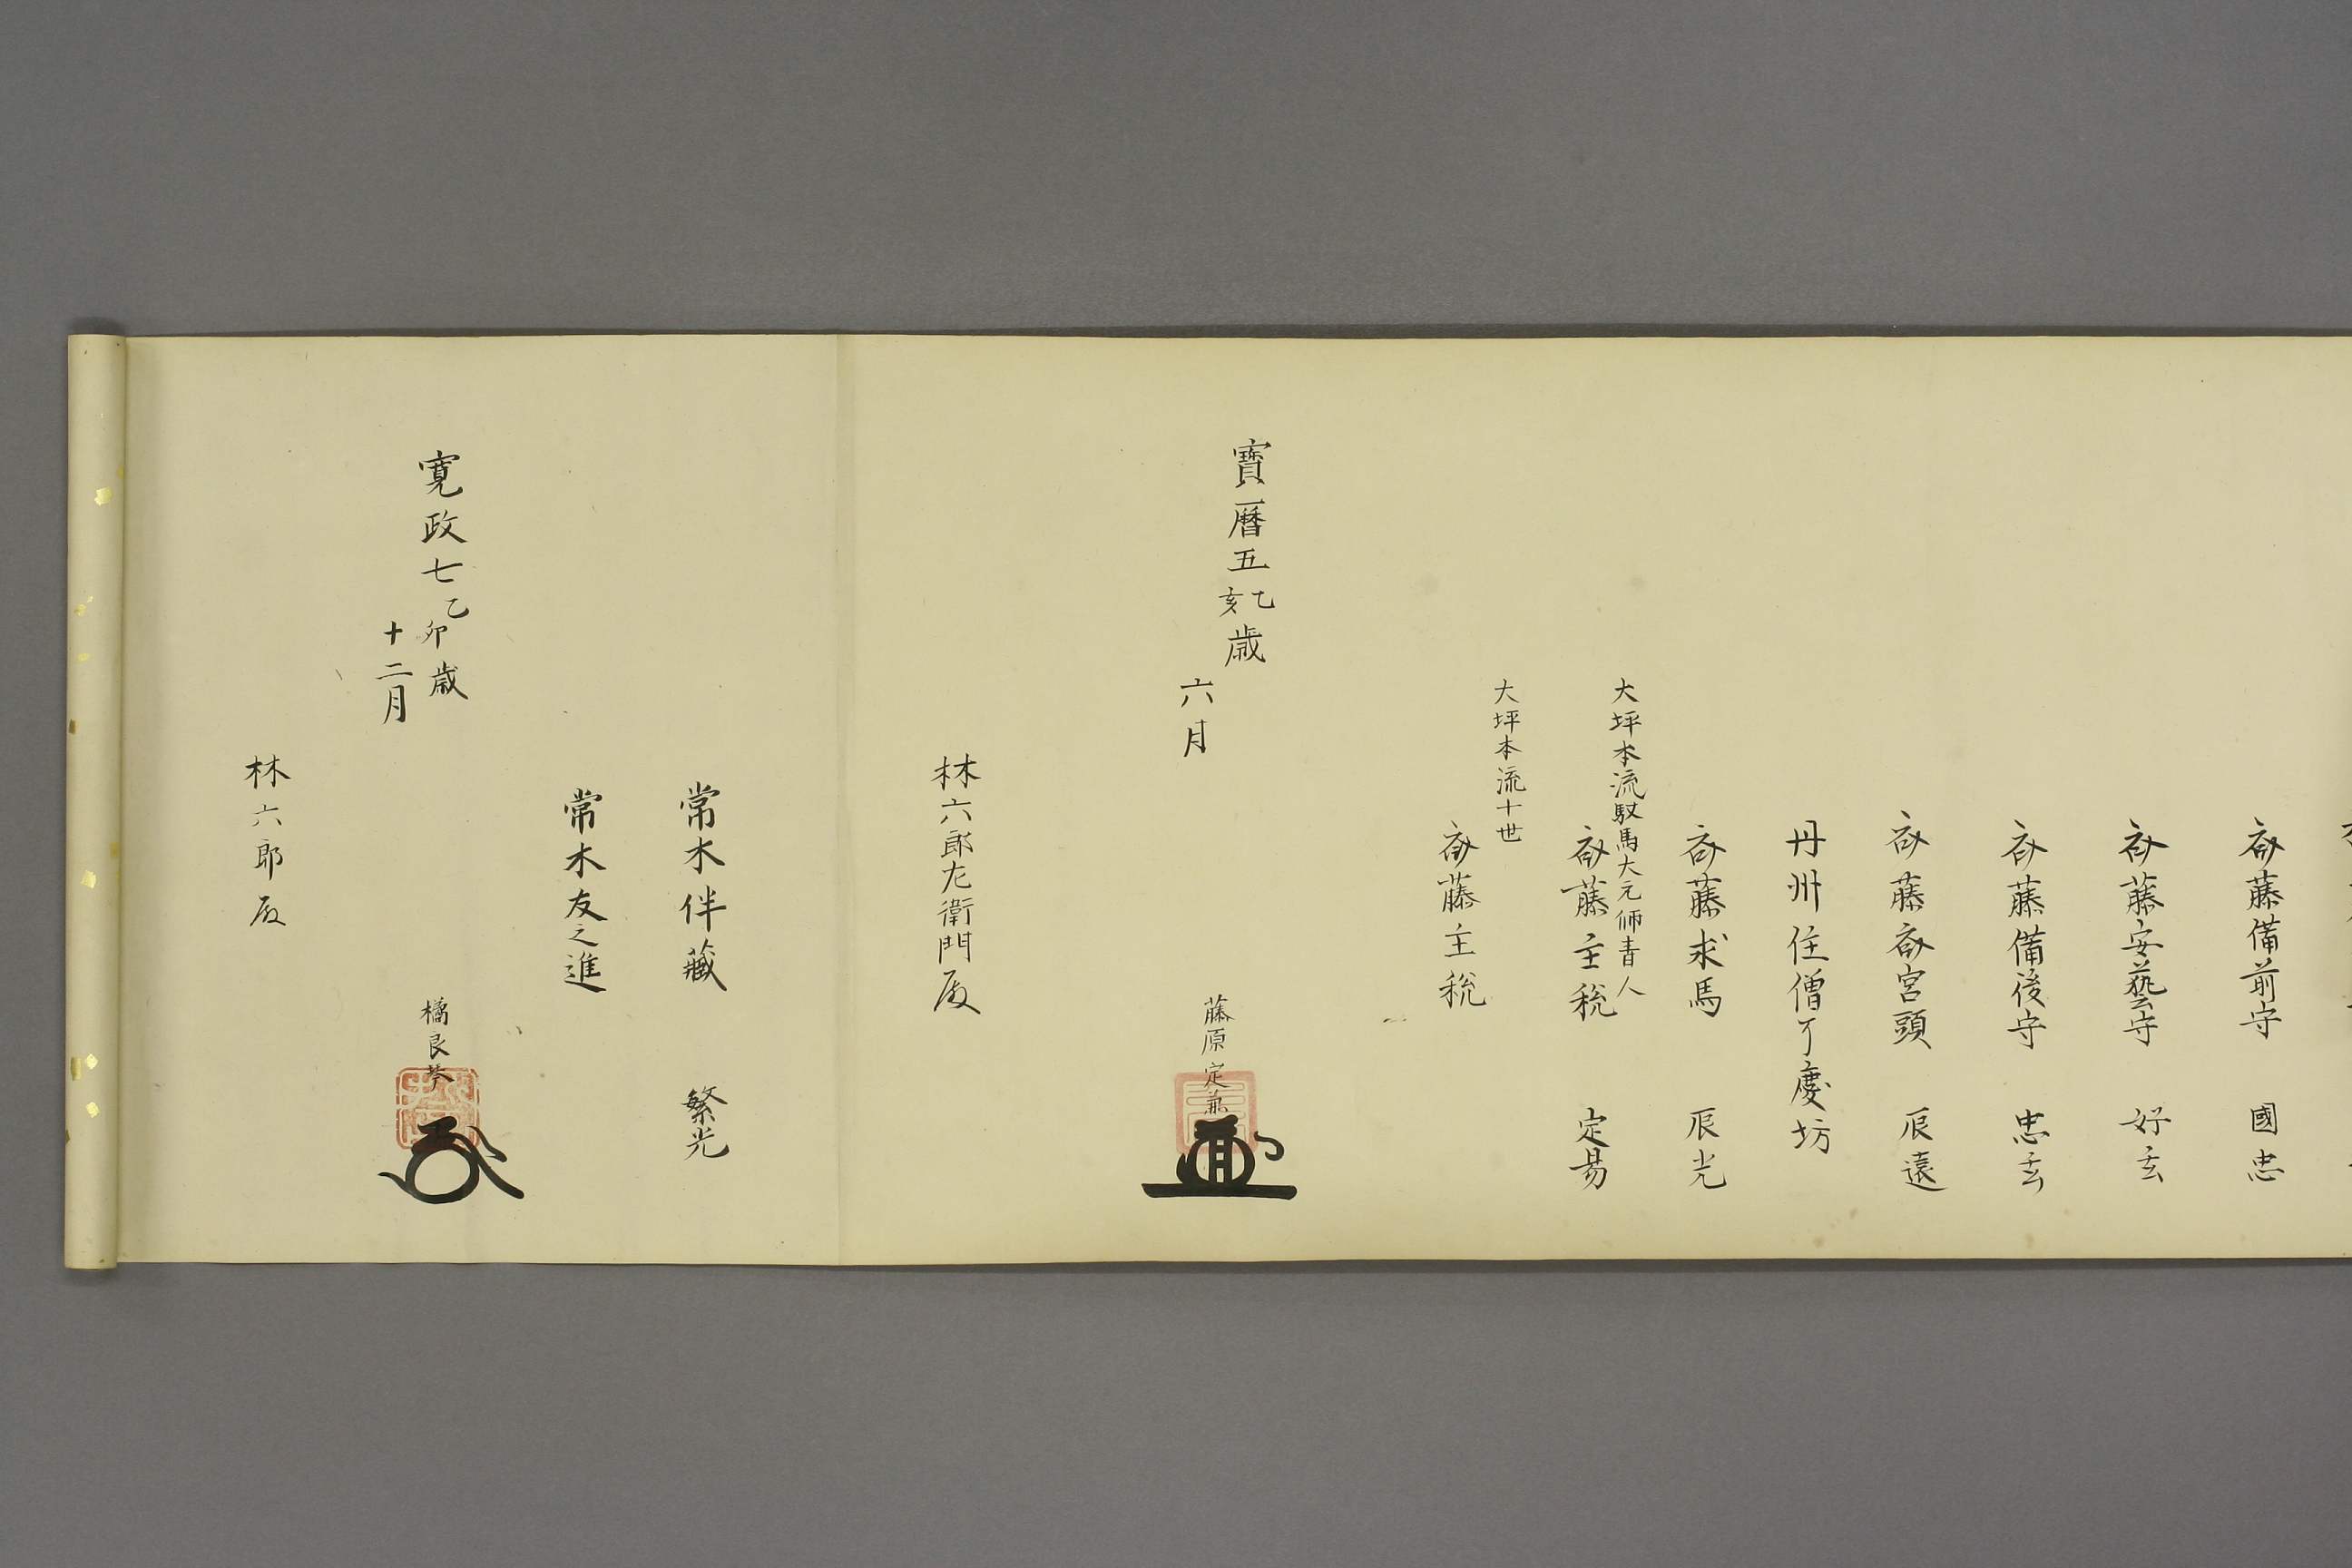 斎藤備前守 國忠
斎藤安藝守 好玄
斎藤備後守 忠玄
斎藤斎宮頭 辰遠
丹州住僧了慶坊
斎藤求馬 辰光
大坪本流馭馬大元師青人
斎藤主税 定易
大坪本流十世
斎藤主税
藤原定兼
寳暦五乙亥歳
六月
林六郎左衛門殿
常木伴藏 繁光
常木友之進
橘良
寛政七乙卯歳
十二月
林六郎殿